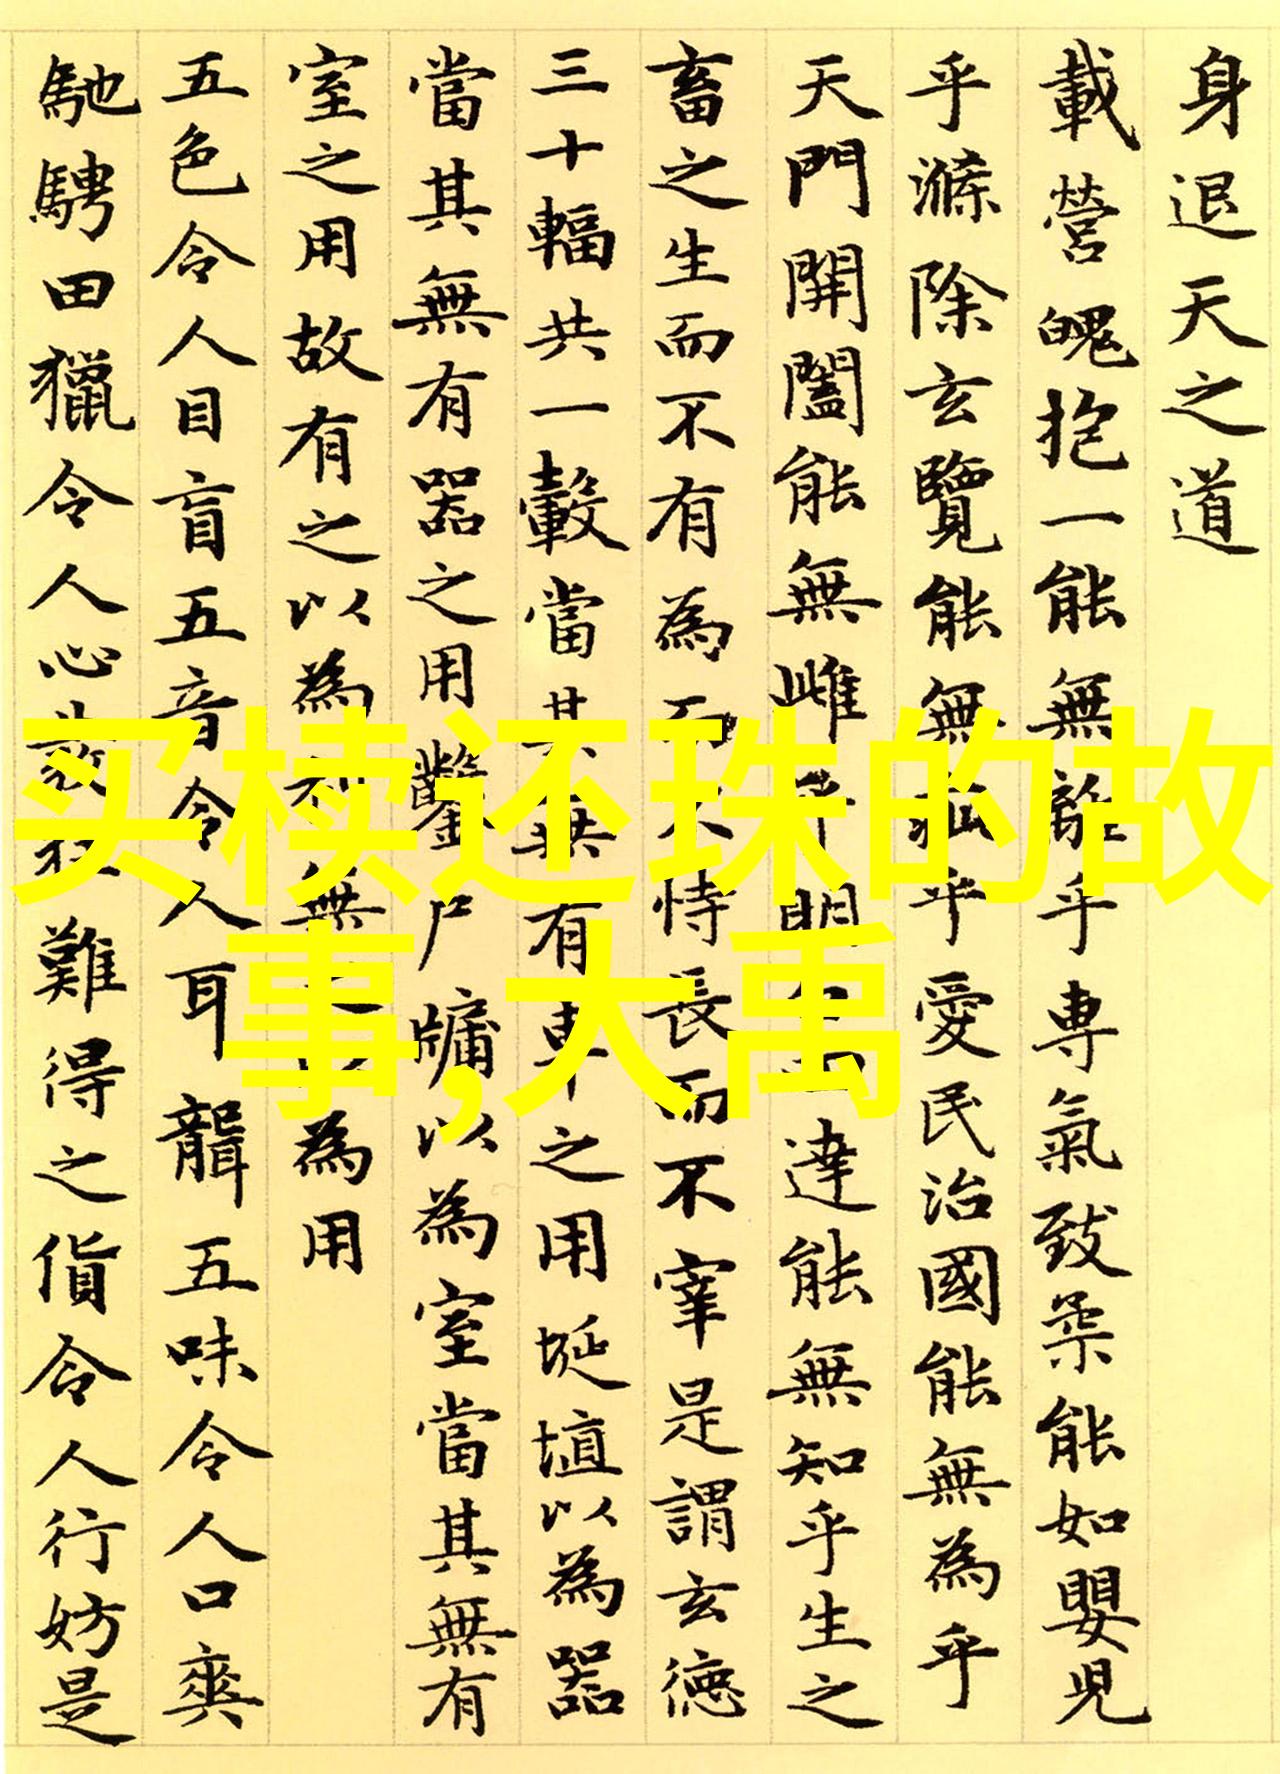 身退天之道
載營魄抱一能無離乎專氣致柔能如嬰兒
乎滌除玄覽能無疵乎愛民治國能無為乎
天門開闔能無雌乎明白四達能無知乎生之
畜之生而不有為而不恃長而不宰是謂玄德
三十輻共一轂當其無有車之用埏埴以為器
當其無有器之用鑿戶牖以為室當其無有
室之用故有之以為利無之以為用
五色令人目盲五音令人耳聾五味令人口爽
馳騁田獵令人心發狂難得之貨令人行妨是
买椟还珠的故
事,大禹